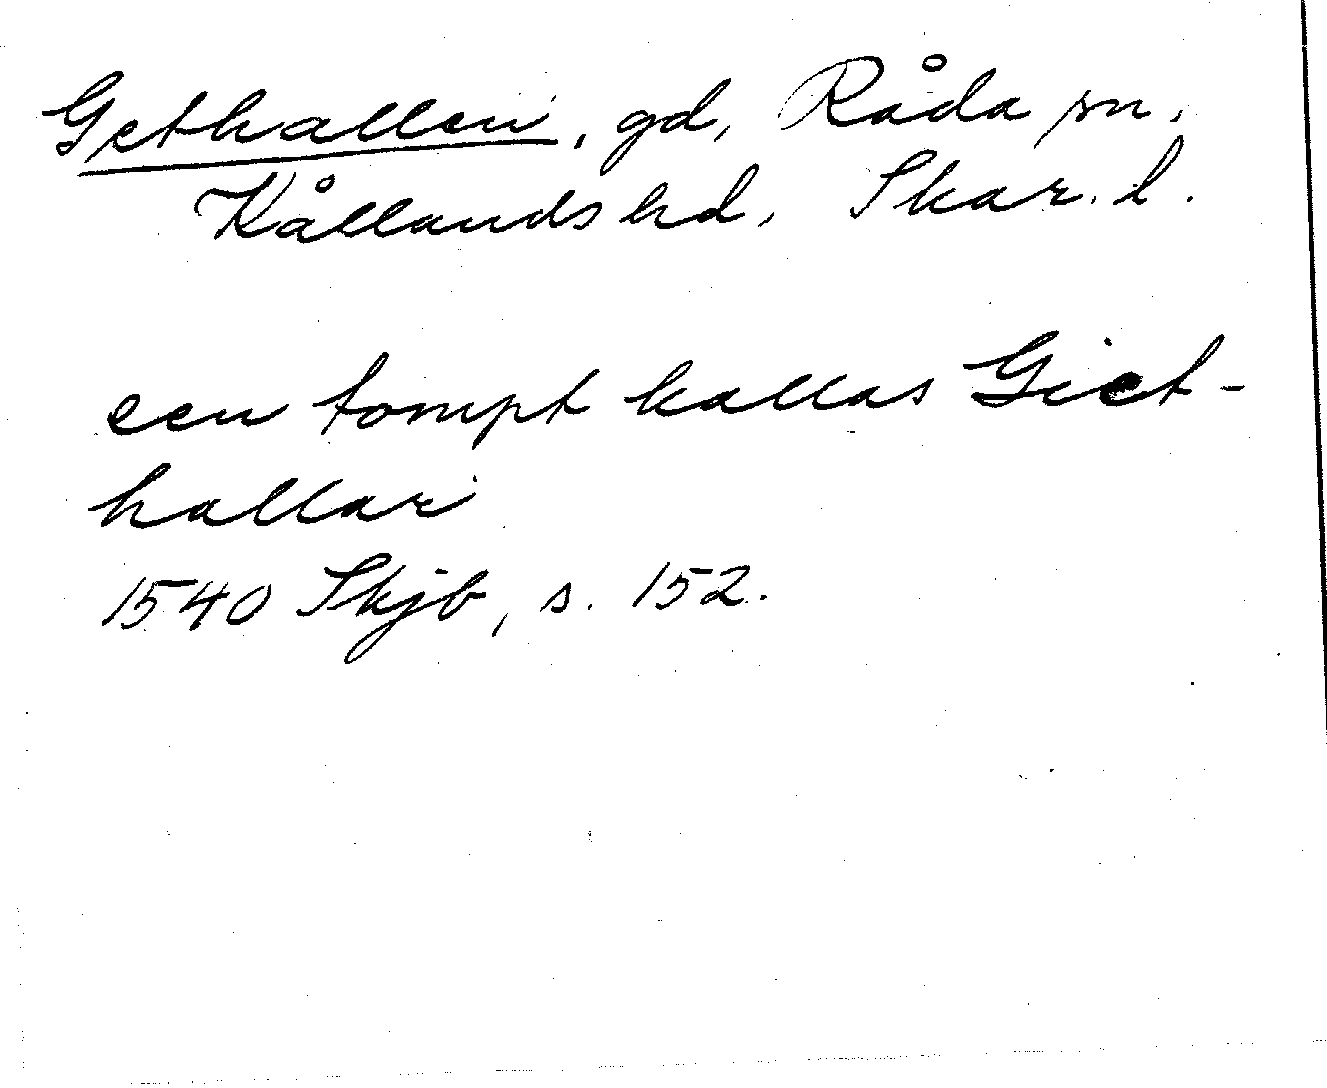 Gethallen, gd, Råda sn,
Kållands hd, Skar. l.
een tompt kallas Giet-
hallar
1540 Skjb, s. 152.